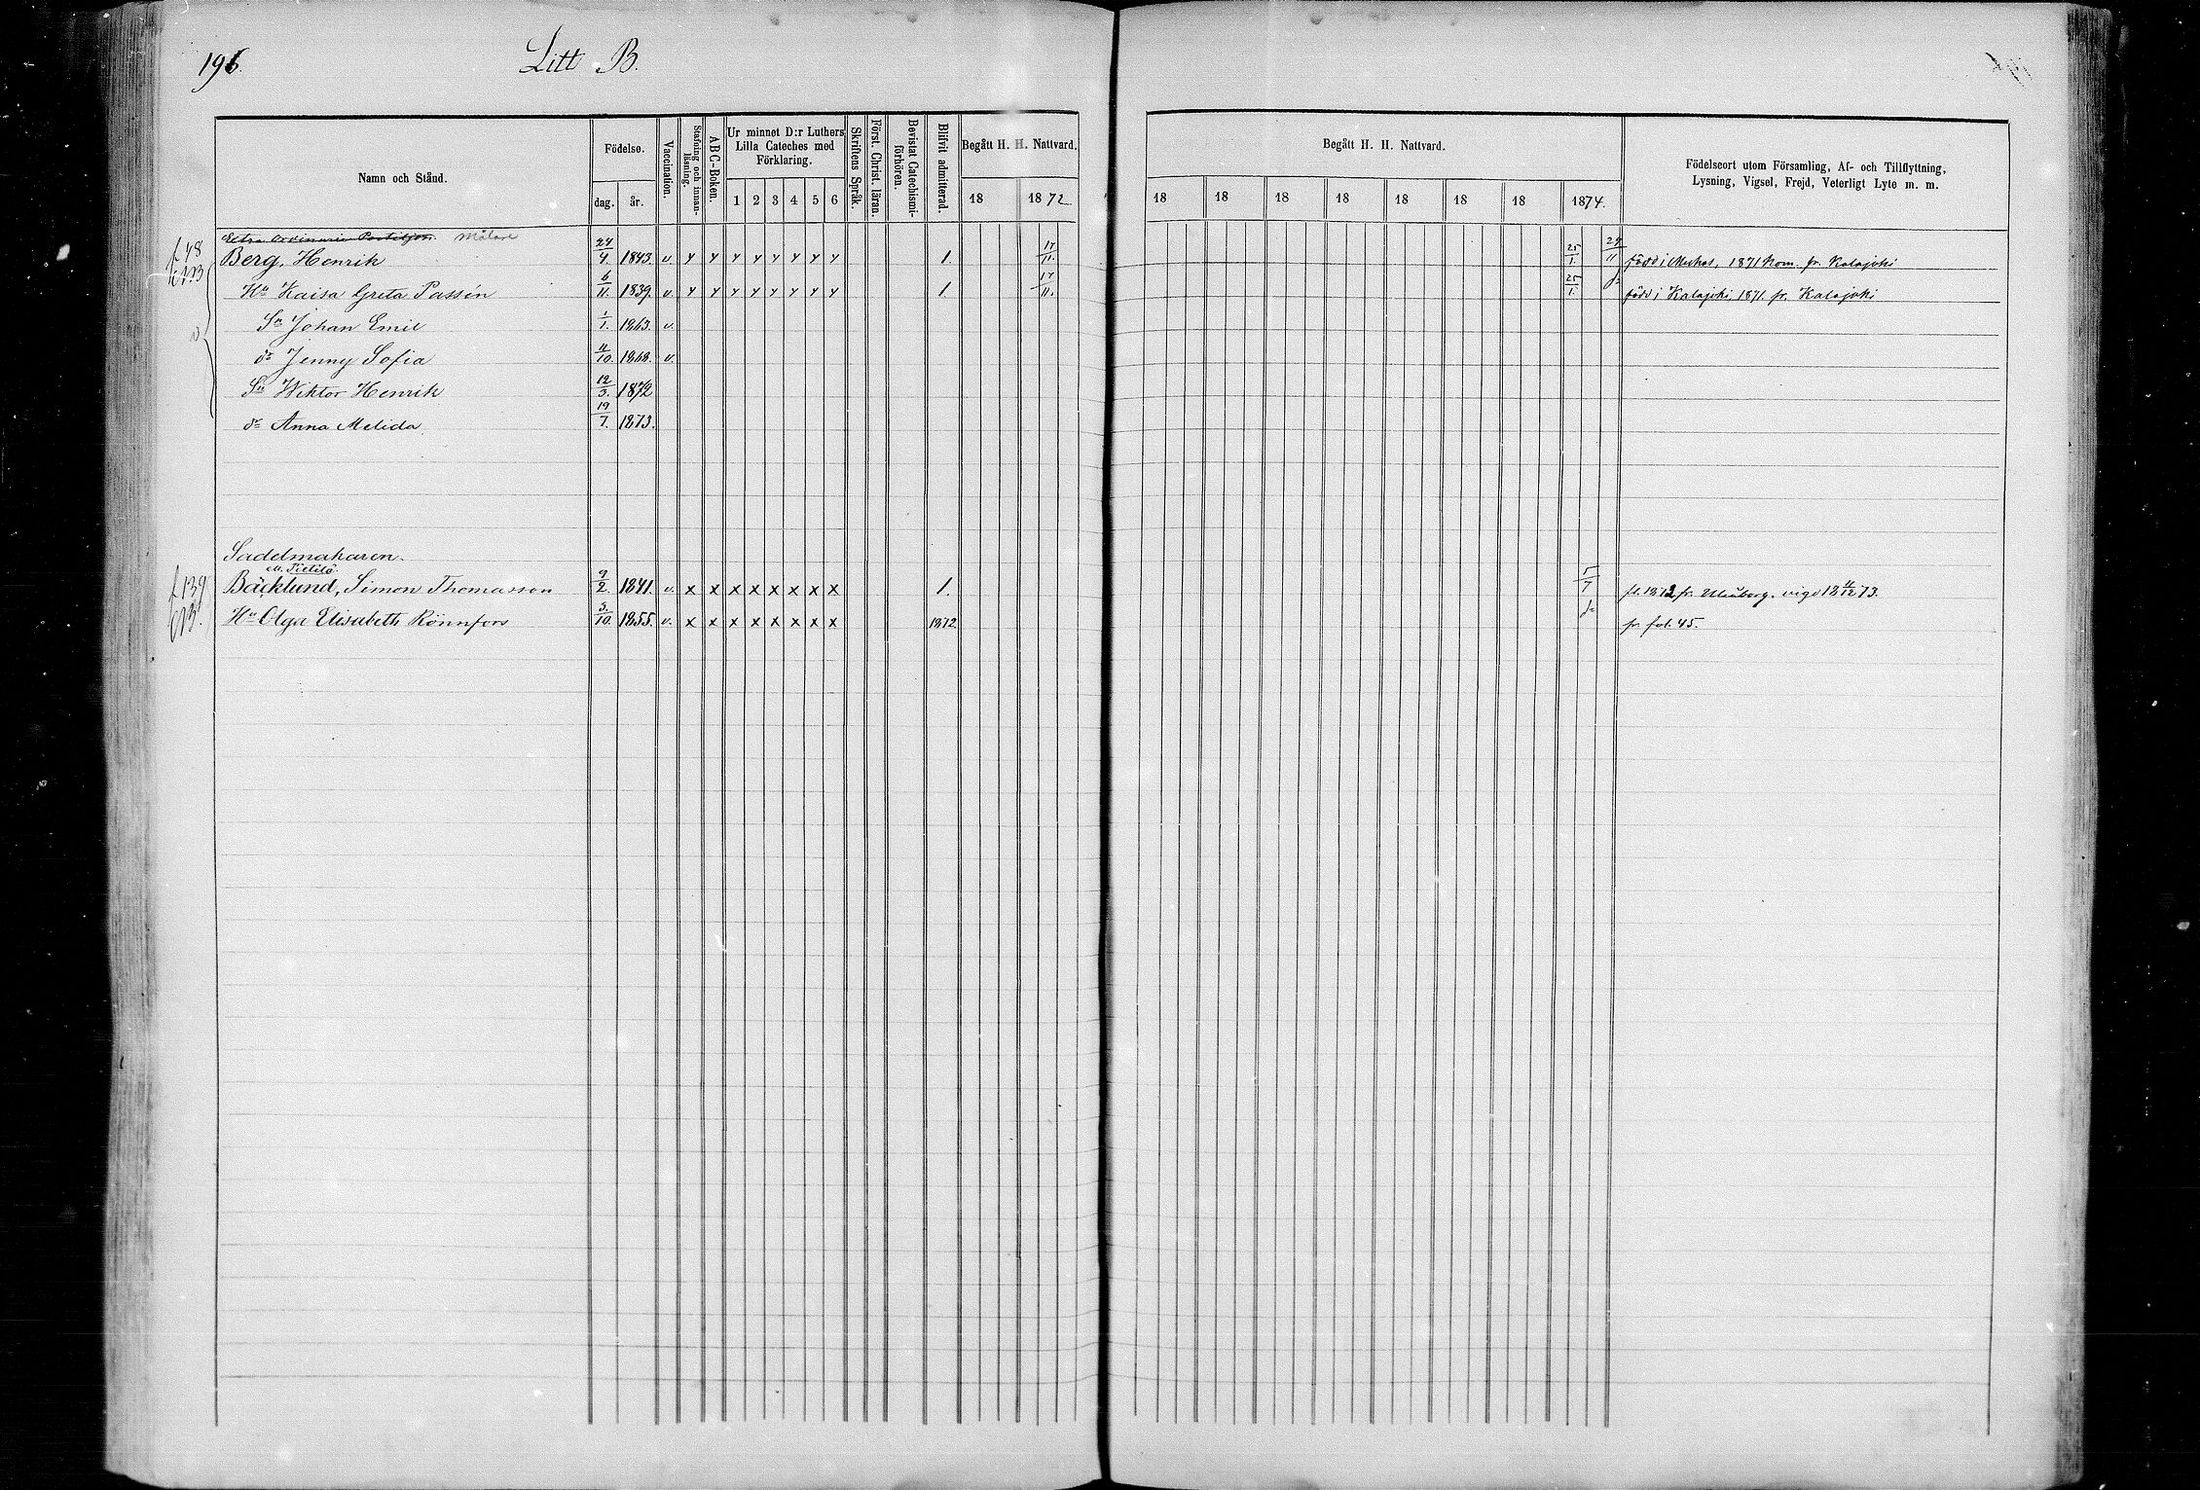 196.
Litt B.
Namn och Stånd.
Födelse.
dag. år.
Vaccination.
Stafning och innan-läsning.
ABC-Boken.
Ur minnet D:r Luthers Lilla Cateches med Förklaring.
1 2 3 4 5 6
Skriftens Språk.
Först. Christ. läran.
Bevistat Catechismi-förhören.
Blifvit admitterad.
Begått H. H. Nattvard.
18 1872
Begått H. H. Nattvard.
18 18 18 18 18 18 18 1874.
Födelseort utom Församling, Af- och Tillflyttning,
Lysning, Vigsel, Frejd, Veterligt Lyte m. m.
Extra Ordinarie Postiljon. Målare
f 48 Berg, Henrik 24/4. 1843. v y y y y y y y y 1. 17/11. 25/1. 29/11 1871 kom. fr. Kalajoki
Hu Kaisa Greta Passén 6/11. 1839. v. y y y y y y y y 1. 17/11. 25/1. född i Kalajoki, 1871. fr. Kalajoki
Sn Johan Emil 1/1. 1863. v.
dr Jenny Sofia 1868. v.
Sn Wiktor Henrik 12/3. 1872
dr Anna Melida 19/7. 1873.
Sadelmakaren.
Pietilä
f 139 Bäcklund, Simon Thomasson 9/2. 1841. v. x x x x x x x x 1. 5/7 fl. 1872 fr. Uleåborg. vigd 18 11/12 73.
Hu Olga Elisabeth Rönnfors 3/10. 1855. v. x x x x x x x x 1872. fr. fol. 45.